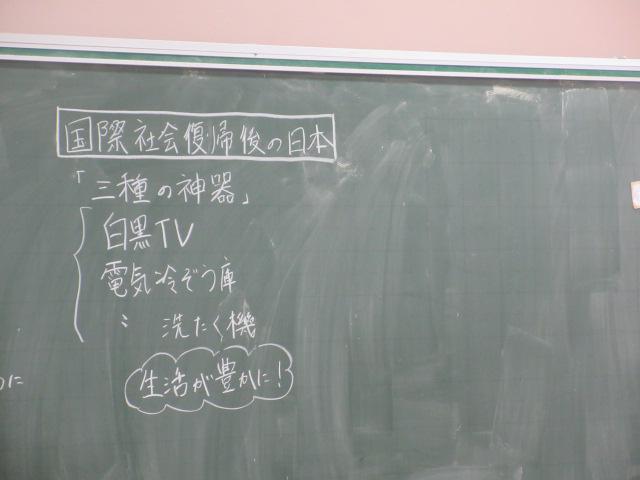 国際社会復帰後の日本
「三種の神器」
白黒TV
電気冷ぞう庫
〃 洗たく機
生活が豊かに!
に